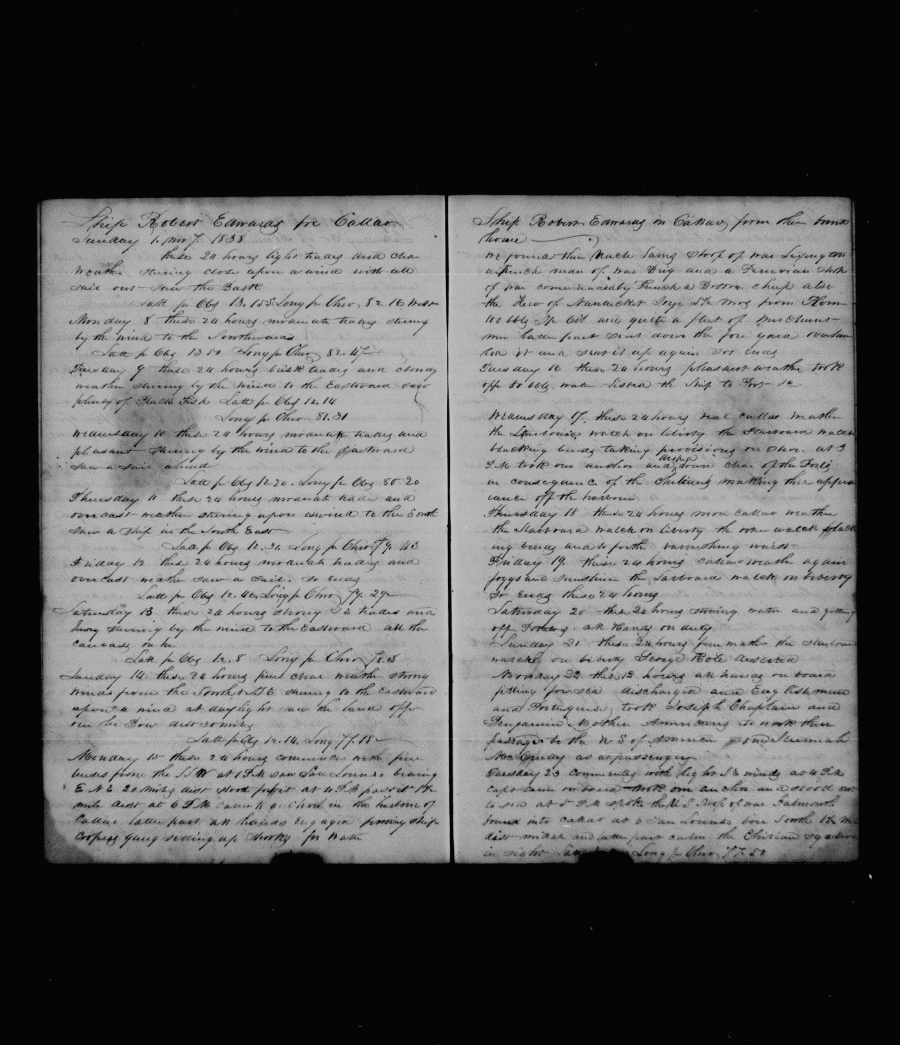 Ship Robert Edwards for Callao
Sunday 7 1838
these 24 hours light trades and clear
weather steering close upon a wind with all
sail out saw the
Latt pr Obs 13.15 S Long pr Chro 82.16 West
Monday 8 these 24 hours moderate trades steering
by the wind to the Southward
Latt pr Obs 13.50 Long pr Chro 82.47
Tuesday 9 these 24 hours brisk trades and cloudy
weather steering by the wind to the Eastward saw
plenty of Fish Latt pr Obs 12.14
Long pr Chro 81.31
Wednesday 10 these 24 hours moderate trades and
pleasant steering by the wind to the Eastward
saw a sail ahead
Latt pr Obs 12.20 Long pr Obs 80.20
Thursday 11 these 24 hours moderate trades and
overcast weather steering upon a wind to the East
saw a ship in the South East
Latt pr Obs 12.31 Long pr Chro 79.43
Friday 12 these 24 hours moderate trades and
overcast weather saw a sail so ends
Latt pr Obs 12.40 Long pr Chro 79.29
Saturday 13 these 24 hours strong S E trades and
steering by the wind to the Eastward all the
canvass on her
Latt pr Obs 12.8 Long pr Chro 78.8
Sunday 14 these 24 hours fine clear weather strong
winds from the South & S E steering to the Eastward
upon a wind at daylight saw the land off
the Bow dist 30 miles
Latt pr Obs 12.14 Long 77.18
Monday 15 these 24 hours commence with fine
breezes from the S W at 1 P M saw San Lorenzo bearing
E N E 20 miles dist stood for it at 4 P M passed it 1/2
mile dist at 6 P M came to anchor in the harbour of
Callao latter part all hands engaged ship
Coopers gang setting up Shooks for Water
Ship Robert Edwards in Callao from then bound
home
We found the Sloop of war Lexington
a french man of war Brig and a Peruvian Ship
of war commanded by French a Boston ship also
the Hero of Nantucket mos from Home
100 bbls Sp Oil and quite a fleet of Merchant
men latter part sent down the fore yard
it and sent it up again so ends
Tuesday 16 these 24 hours pleasant weather took
off 80 bbls water the Ship to Port &c
Wednesday 17 these 24 hours real callao weather
the Larboard watch on liberty the Starboard watch
blacking bends taking provisions on shore at 3
P M took our anchor and droped down clear of the Forts
in consequence of the Chilians making their appear
ance off the harbour
Thursday 18 these 24 hours more callao weather
the Starboard watch on liberty the other watch black
ing bends and so forth varnishing waist
Friday 19 these 24 hours callao weather again
foggs and sunshine the Larboard watch on liberty
so ends these 24 hours
Saturday 20 these 24 hours stowing water and getting
off Potatoes all Hands on duty
Sunday 21 these 24 hours fine weather the starboard
watch on liberty George Hole deserted
Monday 22 these 12 hours all hands on board
fitting for sea discharged one Englishman
and Portugues took Joseph Chaplain and
Benjamin Mother Americans to work their
passage to the U S of America and Jeremiah
as a passenger
Tuesday 23 commences with light S E winds at 4 P M
capt came on board took our anchor and stood out
to sea at 5 P M spoke the U S Sloop of war Falmouth
bound into callao at 6 San Lorenzo bore South 1 1/2 mile
dist middle and latter part calm the Chilian squadron
in sight Long pr Chro 77.50